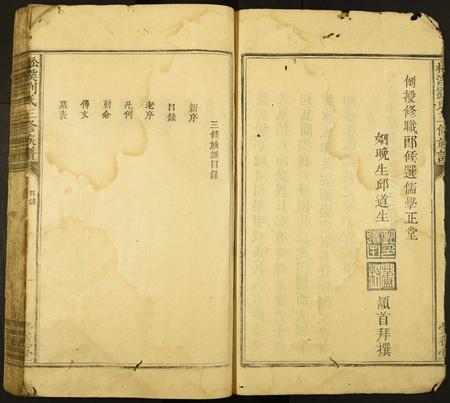 例授修職郎候選儒學正堂
姻晚生邱道生
頓首拜撰
三修族譜目錄
新序
目錄
老序
凡例
勅命
傳文
墓表
松溪劉氏三修族譜
目錄